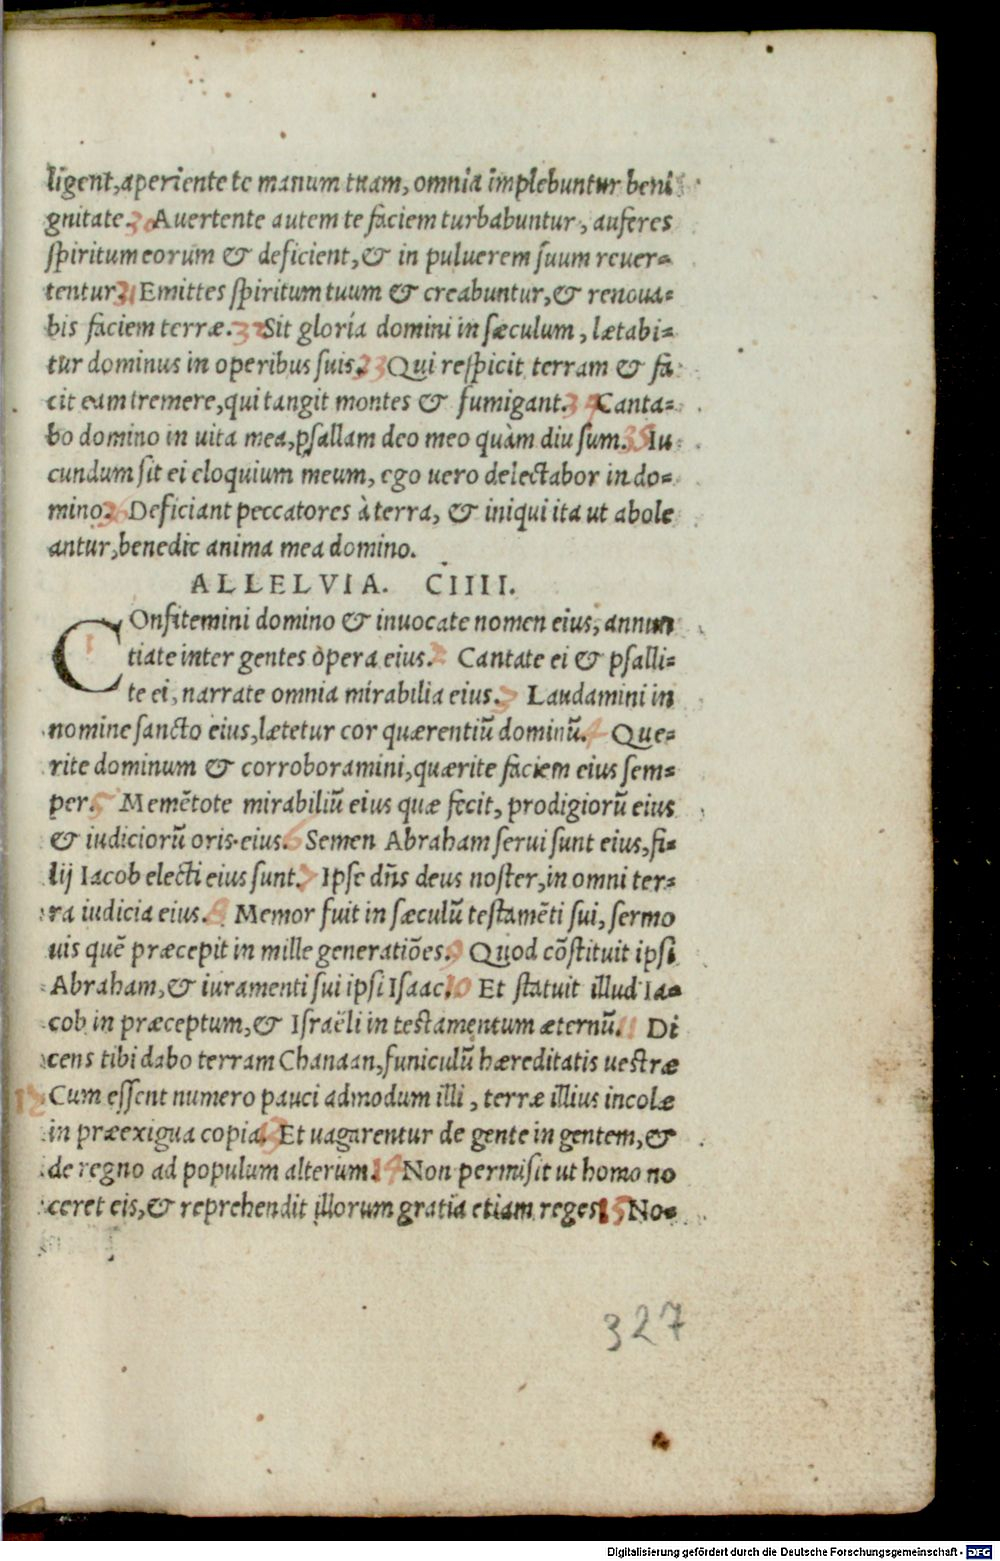 ligent,aperiente te manum tuam, omnia implebuntur beni
gnitate. 30 Auertente autem te faciem turbabuntur, auferes
spiritum eorum & deficient, & in puluerem suum reuer=
tentur. 31 Emittes spiritum tuum & creabuntur, & renoua=
bis faciem terræ. 32 Sit gloria domini in sæculum, lætabi=
tur dominus in operibus suis. 33 Qui respicit terram & fa
cit eam tremere, qui tangit montes & fumigant. 34 Canta=
bo domino in uita mea, psallam deo meo quàm diu sum. 35 Iu
cundum sit ei eloquium meum, ego uero delectabor in do=
mino. 36 Deficiant peccatores à terra, & iniqui ita ut abole
antur, benedic anima mea domino.
ALLELVIA. CIIII.
1 COnfitemini domino & inuocate nomen eius, annun
tiate inter gentes opera eius. 2 Cantate ei & psalli=
te ei, narrate omnia mirabilia eius. 3 Laudamini in
nomine sancto eius, lætetur cor quærentiũ dominũ. 4 Que=
rite dominum & corroboramini, quærite faciem eius sem=
per. 5 Memẽtote mirabiliũ eius quæ fecit, prodigiorũ eius
& iudiciorũ oris eius. 6 Semen Abraham serui sunt eius, fi=
lij Iacob electi eius sunt. 7 Ipse dñs deus noster, in omni ter=
ra iudicia eius. 8 Memor fuit in sæculũ testamẽti sui, sermo
uis quẽ præcepit in mille generatiões. 9 Quod cõstituit ipsi
Abraham, & iuramenti sui ipsi Isaac. 10 Et statuit illud Ia=
cob in præceptum, & Israëli in testamentum æternũ. 11 Di
cens tibi dabo terram Chanaan, funiculũ hæreditatis uestræ
12 Cum essent numero pauci admodum illi, terræ illius incolæ
in præexigua copia. 13 Et uagarentur de gente in gentem, &
de regno ad populum alterum. 14 Non permisit ut homo no
ceret eis, & reprehendit illorum gratia etiam reges. 15 No=
327
Digitalisierung gefördert durch die Deutsche Forschungsgemeinschaft - DFG